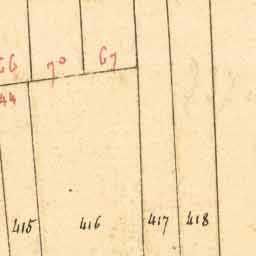 66 70 67
44
415 416 417 418